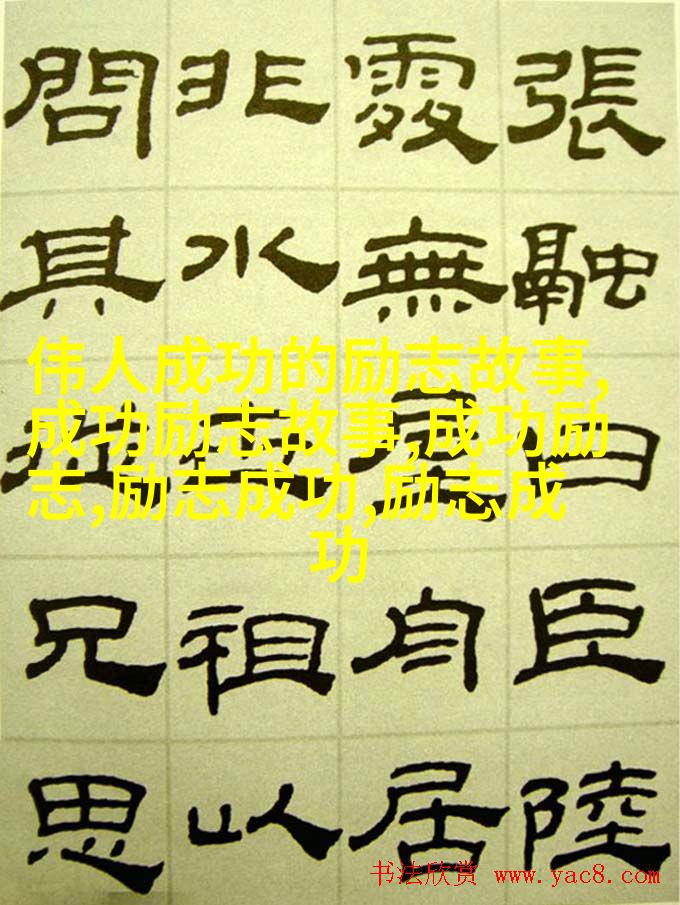 張融曰臣陸
處無屋舟居
非水祖以
問其從兄思
伟人成功的励志故事,
成功励志故事,成功励
志,励志成功,励志成
功
书法欣赏 www.yac8.com